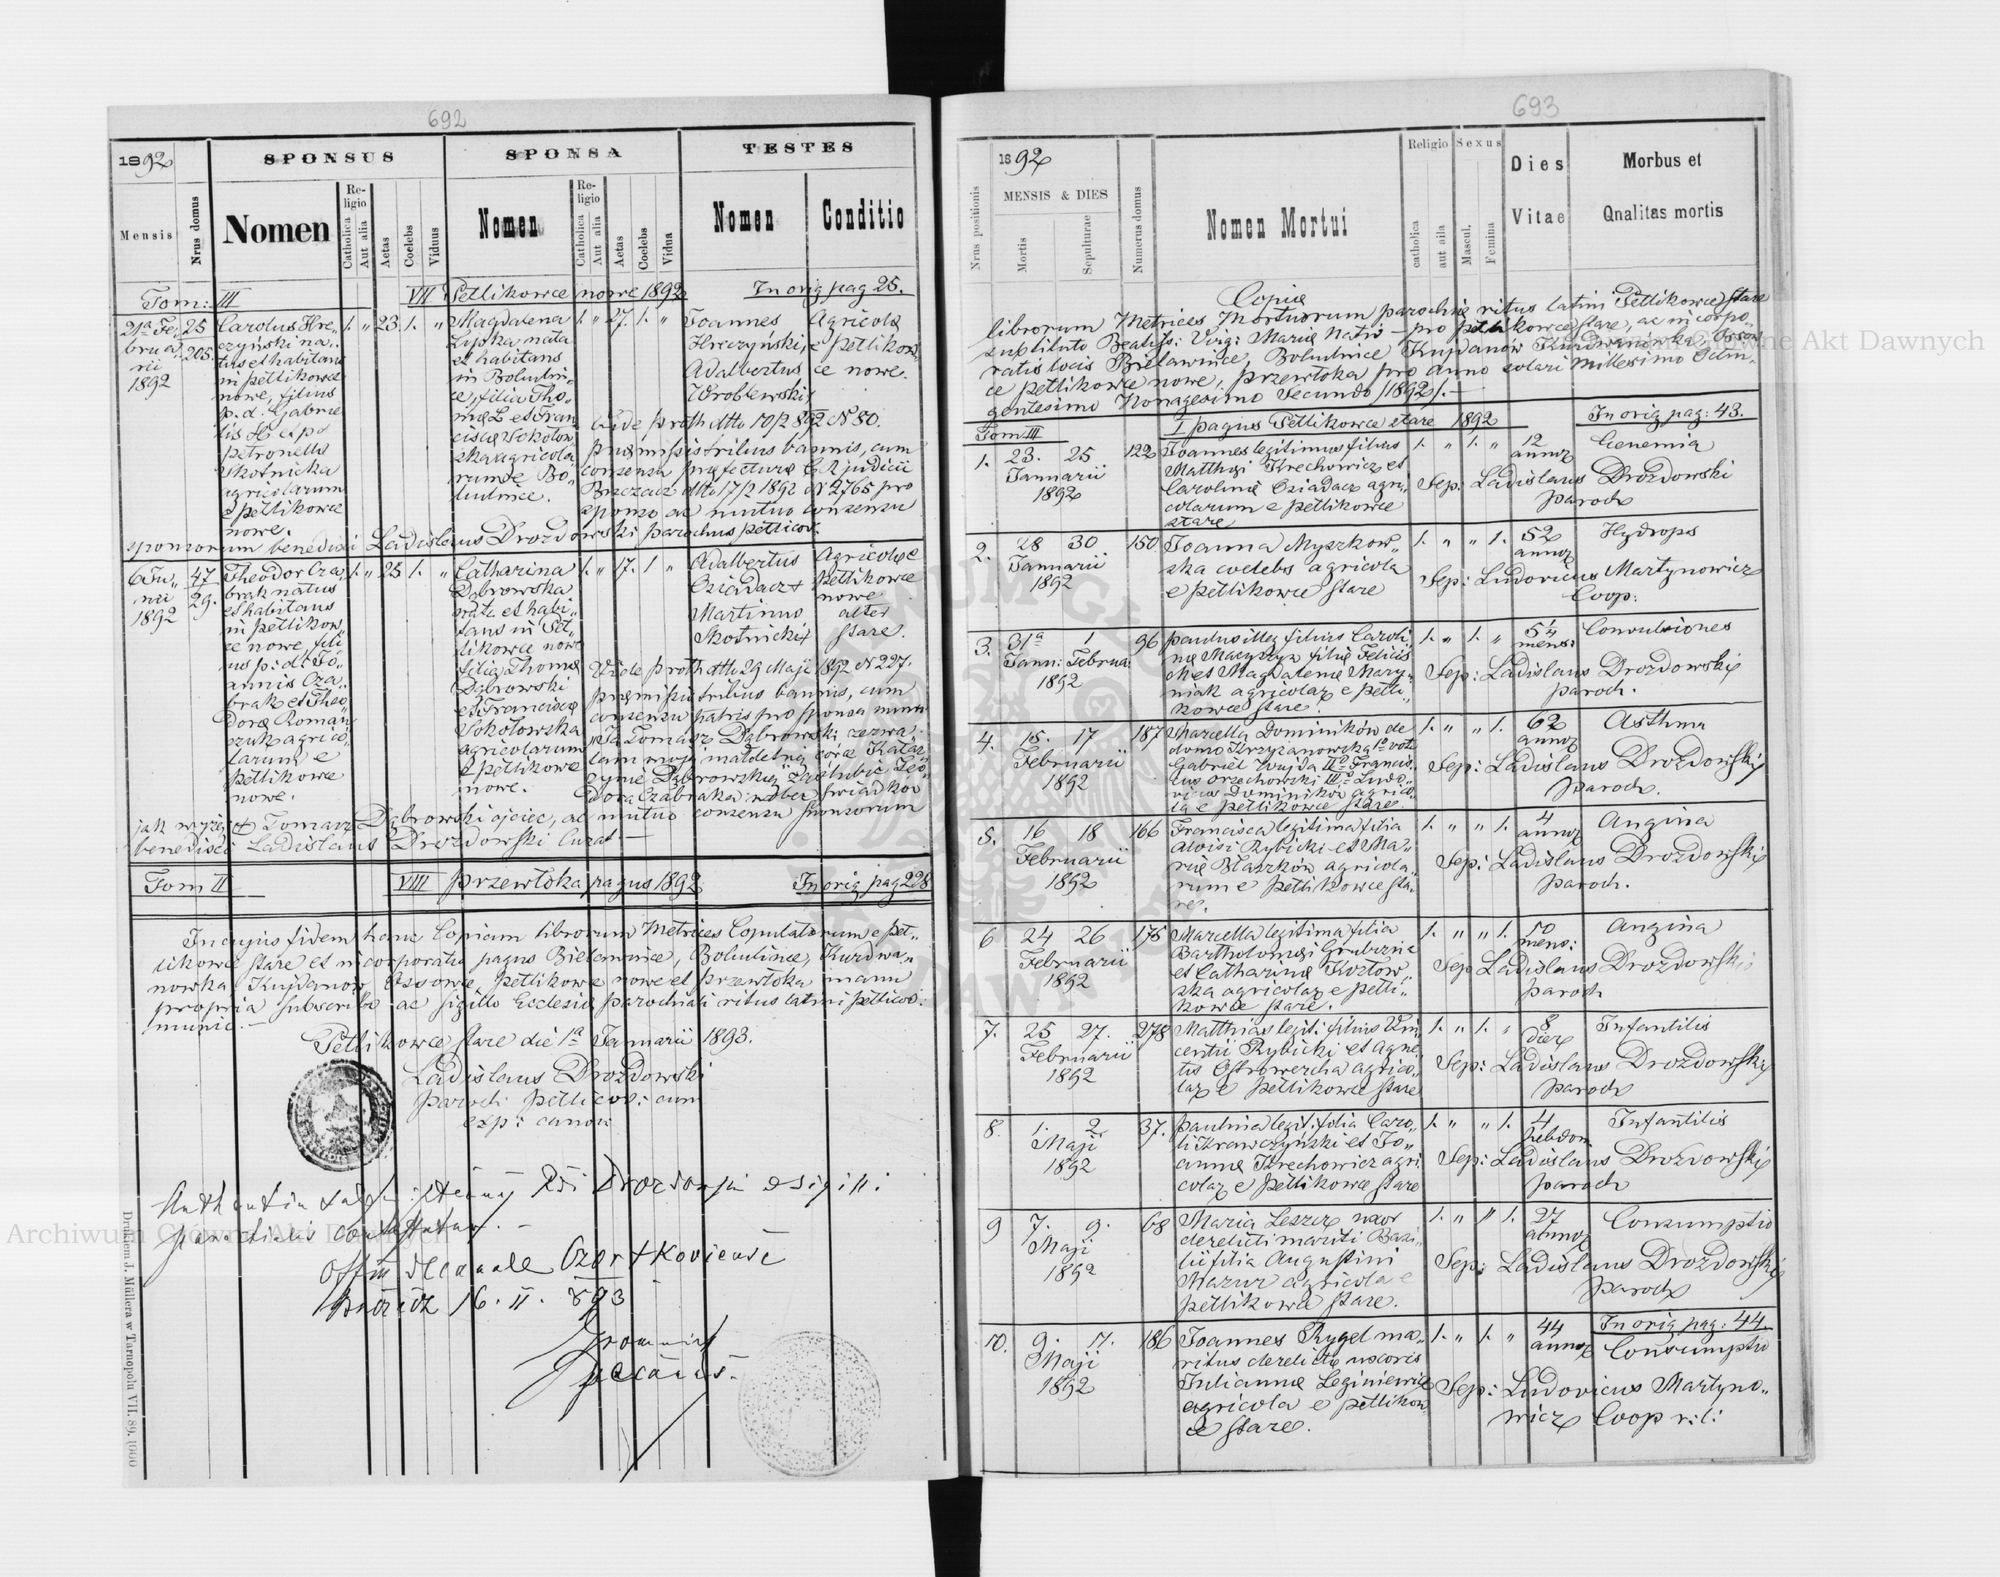 692
1892
SPONSUS
SPONSA
TESTES
Mensis
Nrus domus
Nomen
Religio
Catholica
Aut alia
Aetas
Coelebs
Viduus
Nomen
Religio
Catholica
Aut alia
Aetas
Coelebs
Vidua
Nomen
Conditio
Tom: III
VII Petlikowce nowe 1892
In orig pag 25.
21a Fe„
bru a„
rii
1892
25
205.
Carolus Hre„
czyński na„
tus et habitans
in Petlikowce
nowe, filius
p. d. Gabrie
lis H et p d
Petronella
Skotnicka
agricolarum
e Petlikowce
nowe.
1. „ 23. 1. „
Magdalena
Lipka nata
et habitans
in Bobulin„
ce, filia Tho„
mæ L et Fran
ciscæ Sokołow
ska agricola
rum e Bo„
bulince.
1. „ 27. 1. „
Joannes
Hreczyński,
Adalbertus
Wroblewski,
Agricolæ
e Petlikow
ce nowe.
Vide proth dtto 10/2 892 N 50.
præmissis tribus bannis, cum
consensu præfecturæ C R judicii
Buczacz dtto 17/2 1892 N 2765 pro
sponso ac mutuo consensu
sponsorum benedixi Ladislaus Drozdowski parochus petlicov.
6 Ju„
nii
1892
47
29.
Theodor Cza„
brak natus
et habitans
in Petlikow
ce nowe, fili
us p: d: Jo„
annis Cza„
brak et Theo
doræ Roman
czuk agrico„
larum e
Petlikowce
nowe.
1. „ 25 1. „
Catharina
Dąbrowska
nata et habi„
tans in Pet„
likowce nowe
filia Thomæ
Dąbrowski
et Franciscæ
Sokołowska
agricolarum
e Petlikowce
nowe.
1. „ 17. 1 „
Adalbertus
Cziadacz +
Martinus
Skotnicki +
Agricolæ e
Petlikowce
nowe
alter
stare.
Vide proth dtto 29 Maji 1892 N 227.
præmissis tribus bannis, cum
consensu patris pro sponsa
„Ja Tomasz Dąbrowski zezwa„
lam mojej małoletniej córce Katar
zynie Dąbrowskiej zaślubić Teo„
dora Czabraka wobec świadków
jak wyżej + Tomasz Dąbrowski ojciec, ac mutuo consensu sponsorum
benedixi Ladislaus Drozdowski Curat.
Tom II
VIII Przewłoka pagus 1892
In orig pag 228
In cujus fidem hanc Copiam librorum Metrices Copulatorum e Pet„
likowce stare et incorporatis pagis Bielawince, Bobulince, Kurdwa„
nowka Kujdanow Ossowce, Petlikowce nowe et Przewłoka manu
propria subscribo ac sigillo Ecclesiæ parochialis ritus latini petlicov:
munio.
Petlikowce stare die 1a Januarii 1893.
Ladislaus Drozdowski
Paroch petlicov: cum
exp: canon
Officium decanale Czortkoviense
16. II. 893
Drukiem J. Müllera w Tarnopolu VII. 89. 1000
693
1892
Nrus positionis
MENSIS & DIES
Mortis
Sepulturae
Numerus domus
Nomen Mortui
Religio
catholica
aut alia
Sexus
Mascul.
Femina
Dies
Vitae
Morbus et
Qnalitas mortis
Copia
librorum Metrices Mortuorum parochiæ ritus latini Petlikowce stare
sub titulo Beatiss: Virg: Mariæ Nativ – pro Petlikowce stare, ac incorpo„
ratis locis Bielawince, Bobulince Kujdanow Kurdwanowka Ossow„
ce Petlikowce nowe, Przewłoka pro anno solari Millesimo Octin„
gentesimo Nonagesimo Secundo /1892/. –
Tom III
I pagus Petlikowce stare 1892
In orig pag: 43.
1. 23. 25
Januarii
1892
122
Joannes legitimus filius
Matthæi Krechowicz et
Carolinæ Cziadacz agri„
colarum e Petlikowce
stare
1. „ 1. „
12
annor
Cenemia
Sep: Ladislaus Drozdowski
Paroch
2. 28 30
Januarii
1892
150
Joanna Myszkow„
ska coelebs agricola
e Petlikowce stare
1. „ „ 1.
52
annor
Hydrops
Sep: Ludovicus Martynowicz
Coop:
3. 31a 1
Jann: Februa:
1892
96
Paulus illeg filius Caroli„
næ Maryniak filiæ Felicis
M et Magdalenæ Mary„
niak agricolar e Petli„
kowce stare.
1. „ 1. „
5¼
mens:
Convulsiones
Sep: Ladislaus Drozdowski
Paroch.
4. 15. 17
Februarii
1892
187
Marcella Dominików de
domo Krzyzanowska 1o voto
Gabriel Wujda IIo Francis„
cus Orzechowski IIIo Ludo„
vicus Dominików agrico„
la e Petlikowce stare.
1. „ „ 1.
62
annor
Asthma
Sep: Ladislaus Drozdowski
Paroch.
5. 16 18
Februarii
1892
166
Francisca legitima filia
Aloisi Rybicki et Ma„
riæ Błaszków agricola„
rum e Petlikowce sta„
re.
1. „ „ 1.
4
annor
Angina
Sep: Ladislaus Drozdowski
Paroch.
6 24 26
Februarii
1892
175
Marcella legitima filia
Bartholomæi
et Catharinæ Kozłow„
ska agricolar e Petli„
kowce stare.
1. „ „ 1.
10
mens:
Angina
Sep Ladislaus Drozdowski
Paroch
7. 25 27.
Februarii
1892
278
Matthias legit: filius Vin„
centii Rybicki et Agne„
tis Ostrowercha agrico„
lar e Petlikowce stare
1. „ 1. „
8
dier
Infantilis
Sep: Ladislaus Drozdowski
Paroch
8. 1. 2.
Maji
1892
37.
Paulina legit: filia Caro„
li Krawczyński et Jo„
annæ Krechowicz agri
colar e Petlikowce stare
1. „ „ 1.
4
hebdom
Infantilis
Sep: Ladislaus Drozdowski
Paroch
9 7. 9.
Maji
1892
68
Maria Leszcz uxor
derelicti mariti Basi„
lii filia Augustini
Mazur agricola e
Petlikowce stare.
1. „ „ 1.
27
annor
Consumptio
Sep: Ladislaus Drozdowski
Paroch
In orig pag: 44.
10. 9. 11.
Maji
1892
186
Joannes Rygel ma„
ritus derelictæ uxoris
Juliannæ Leginiewicz
agricola e Petlikow
ce stare.
1. „ 1. „
44
annor
Consumptio
Sep: Ludovicus Martyno„
wicz Coop r: l:
Archiwum Główne Akt Dawnych